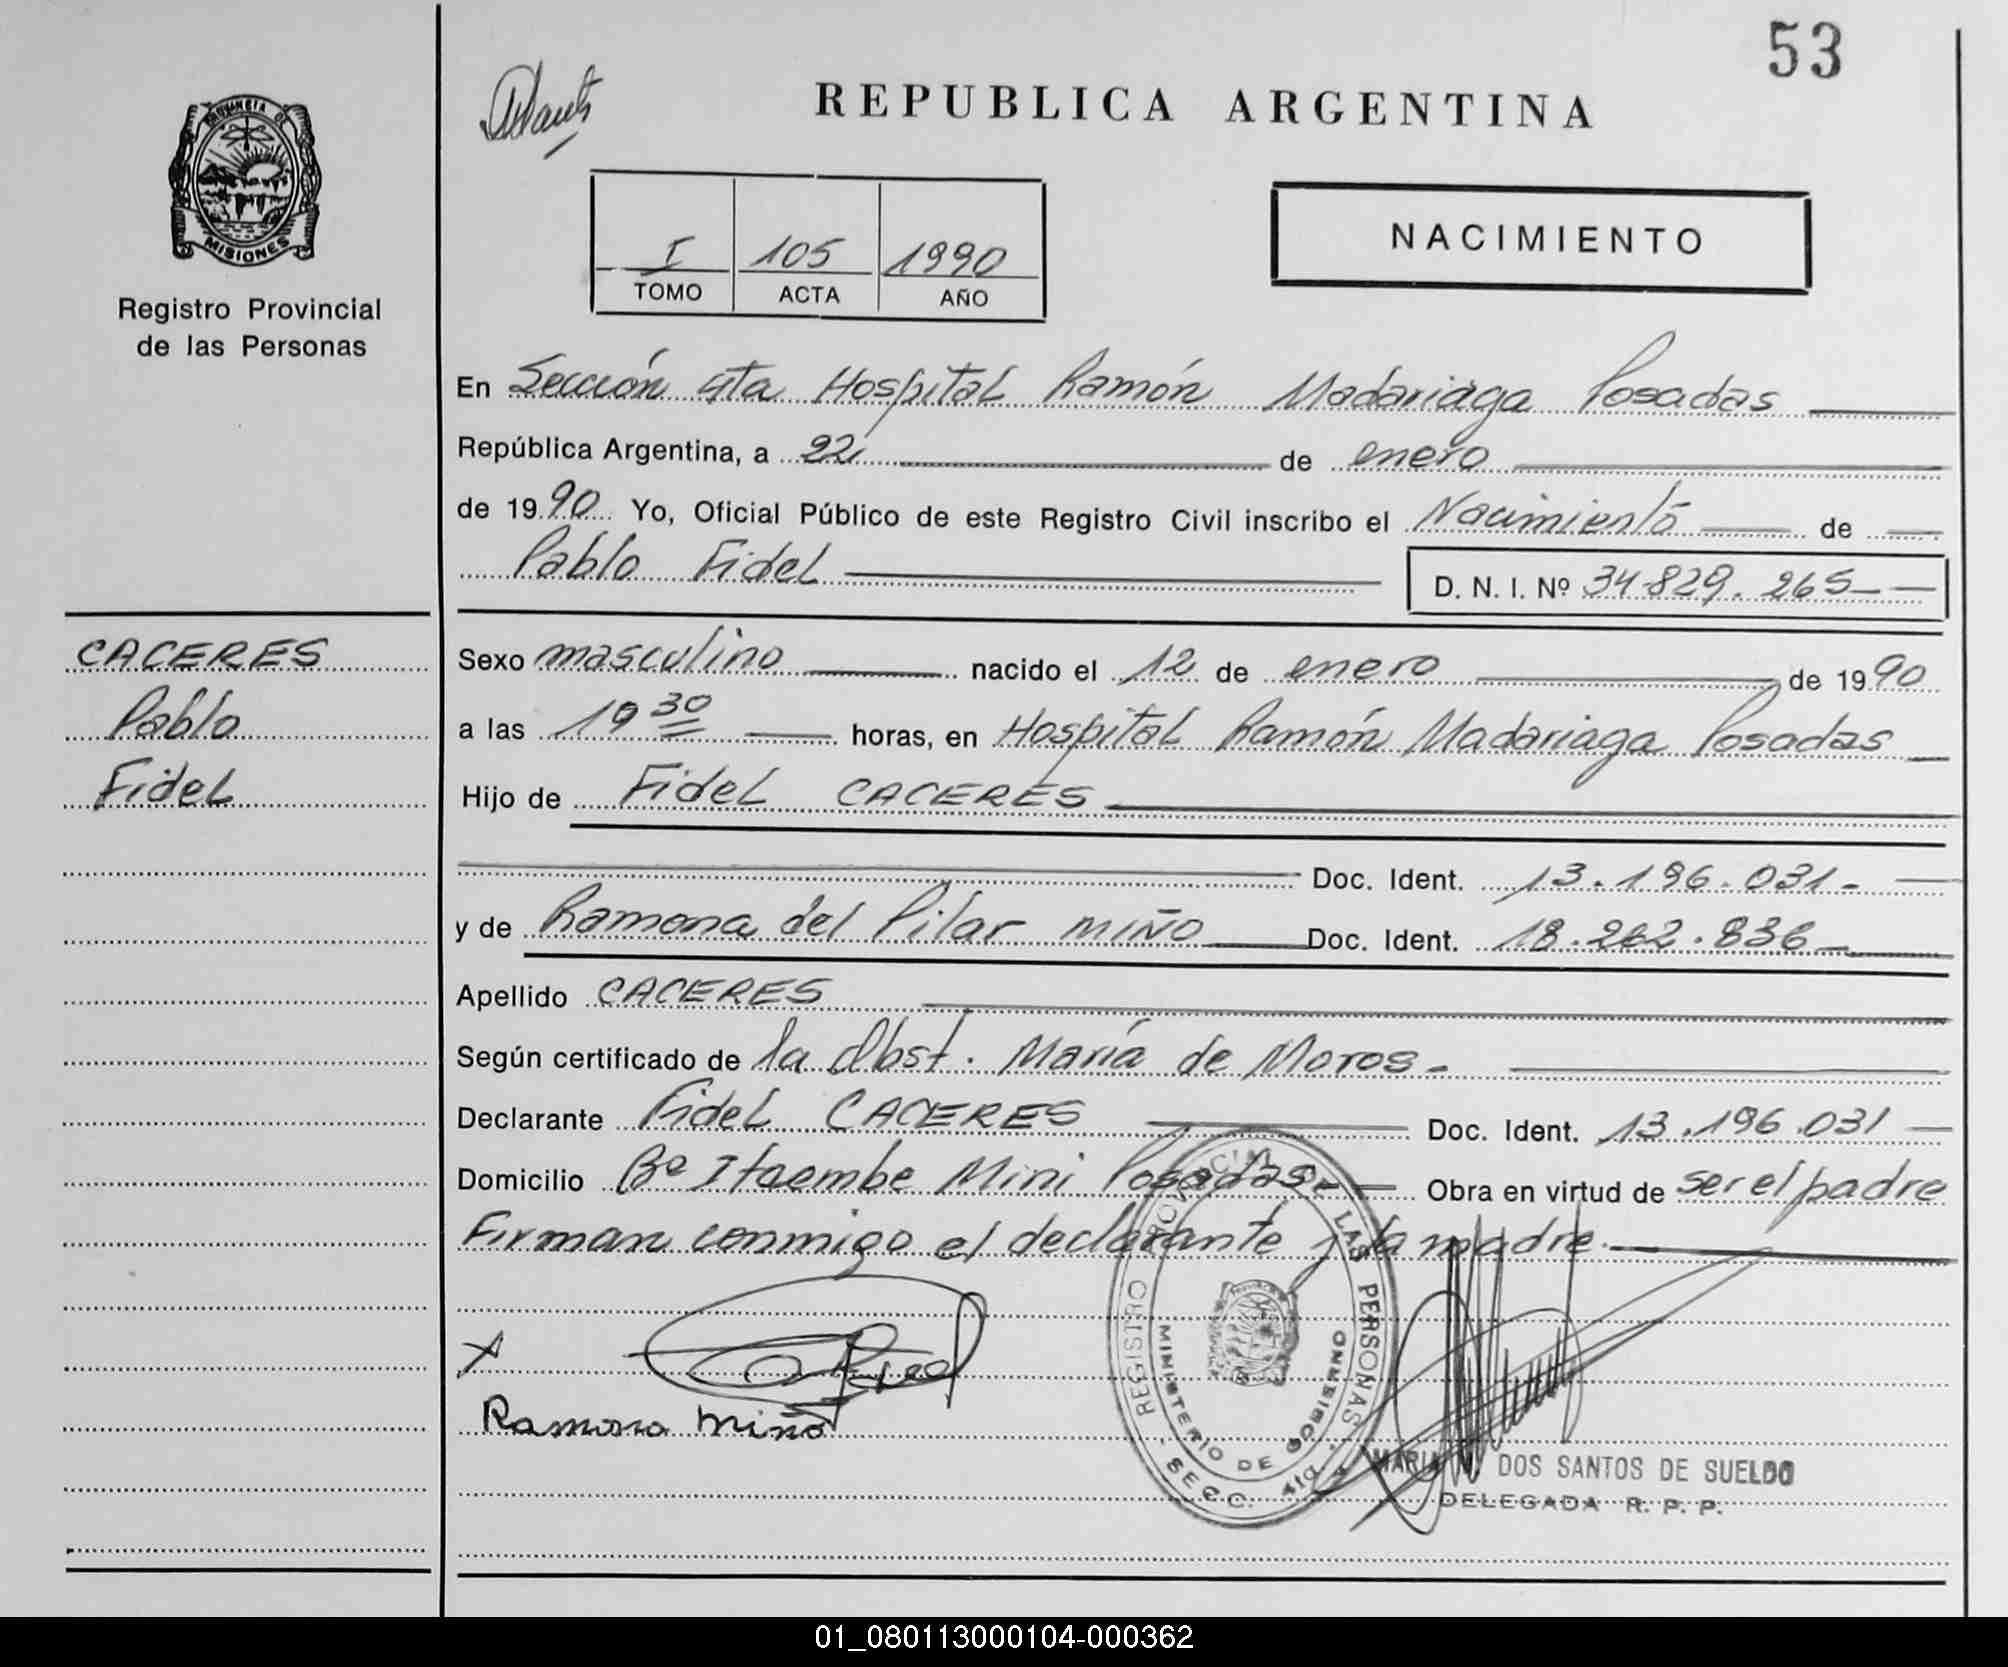 53
REPUBLICA ARGENTINA
PROVINCIA DE
MISIONES
Registro Provincial
de las Personas
I 105 1990
TOMO ACTA AÑO
NACIMIENTO
En Sección 4ta Hospital Ramón Madariaga Posadas
República Argentina, a 22 de enero
de 1990 Yo, Oficial Público de este Registro Civil inscribo el Nacimiento de
Pablo Fidel D. N. I. Nº 34.829.265
CACERES
Pablo
Fidel
Sexo masculino nacido el 12 de enero de 1990
a las 19 30 horas, en Hospital Ramón Madariaga Posadas
Hijo de Fidel CACERES
Doc. Ident. 13.196.031.-
y de Ramona del Pilar MIÑO Doc. Ident. 18.262.836
Apellido CACERES
Según certificado de la Obst. María de Moros.
Declarante Fidel CACERES Doc. Ident. 13.196.031
Domicilio Bº Itaembe Mini Posadas Obra en virtud de ser el padre
Firman conmigo el declarante y la madre.
X
Ramona Miño
REGISTRO PROVINCIAL DE LAS PERSONAS
MINISTERIO DE GOBIERNO
SECC. 4ta
MARIA DOS SANTOS DE SUELDO
DELEGADA R. P. P.
01_080113000104-000362